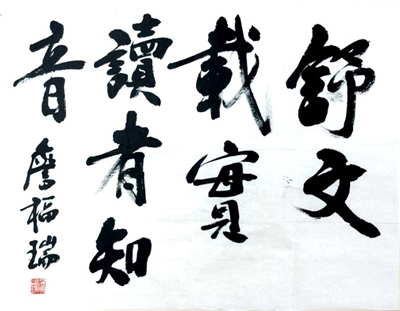 舒文
載實
讀者知
音
詹福瑞